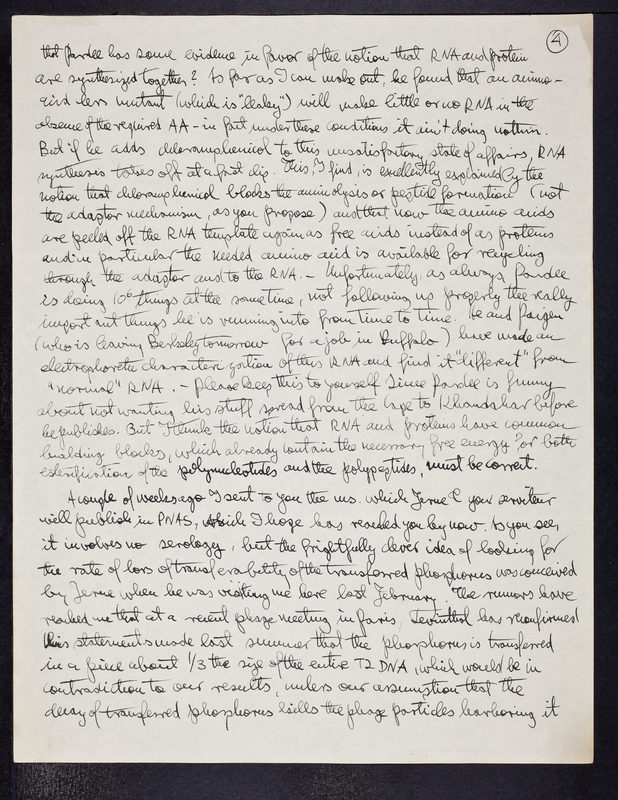 4
that Pardee has some evidence in favor of the notion that RNA and protein
are synthesized together? As far as I can make out, he found that an amino-
acid-less mutant (which is "leaky") will make little or no RNA in the
absence of the required AA - in fact under these conditions it ain't doing nothin.
But if he adds chloramphenicol to this unsatisfactory state of affairs, RNA
synthesis takes off at a fast clip. This, I find, is excellently explained by the
notion that chloramphenicol blocks the aminolysis or peptide formation (not
the adaptor mechanism, as you propose) and that now the amino acids
are peeled off the RNA template again as free acids instead of as proteins
and in particular the needed amino acid is available for recycling
through the adaptor and to the RNA. - Unfortunately, as always, Pardee
is doing 10⁶ things at the same time, not following up properly the really
important things he is running into from time to time. He and Paigen
(who is leaving Berkeley tomorrow for a job in Buffalo) have made an
electrophoretic characterization of this RNA and find it "different" from
"normal" RNA. - Please keep this to yourself since Pardee is funny
about not wanting his stuff spread from the Cape to Khandahar before
he publishes. But I think the notion that RNA and proteins have common
building blocks, which already contain the necessary free energy for both
esterification of the polynucleotides and the polypeptides, must be correct.
A couple of weeks ago I sent to you the ms. which Jerne & your serviteur
will publish in PNAS, which I hope has reached you by now. As you see,
it involves no serology, but the frightfully clever idea of looking for
the rate of loss of transferability of the transferred phosphorus was conceived
by Jerne when he was visiting me here last February. The rumors have
reached me that at a recent phage meeting in Paris, Levinthal has reconfirmed
his statements made last summer that the phosphorus is transferred
in a piece about 1/3 the size of the entire T2 DNA, which would be in
contradiction to our results, unless our assumption that the
decay of transferred phosphorus kills the phage particles harboring it